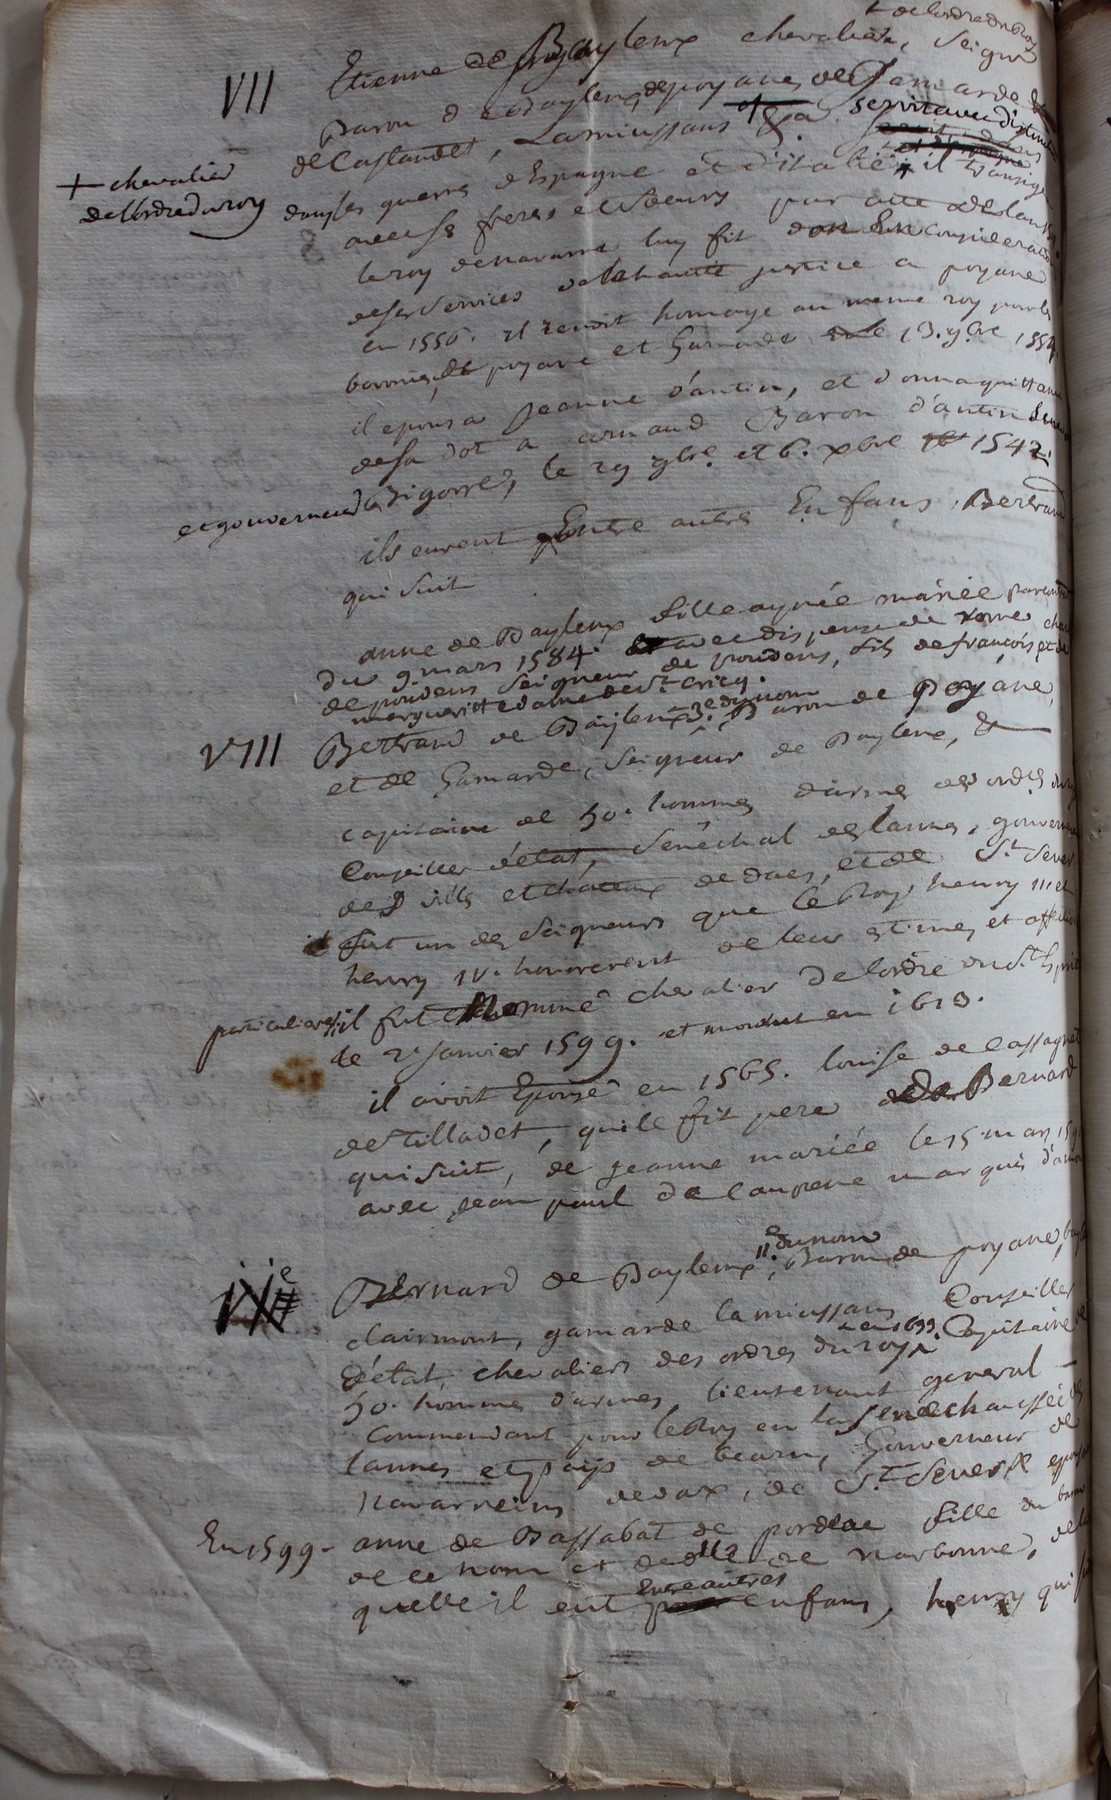 + de lordre du Roy
VII Etienne de Bayleux chevalier, Seignr
Baron de Baylenx, de poyane, de Gamarde
de Castandet, Lamiussans &a. servit avec distinction
+ chevalier
de lordre du roy
dans les guerres d'Espagne et d'italie, il transigea
avec ses freres et soeurs par acte
le roy de navarre luy fit don En consideration
de ses services de la haute justice a poyane
en 1556. il rendit homage au meme roy pour les
baronnies de poyane et Gamarde le 13. 9bre 155
il epousa Jeanne d'antin, et donna quittance
de sa dot a arnaud Baron d'antin
et gouverneur de Bigorre, le 29 9bre. et 6. xbre 1542
ils eurent Entre autres Enfans, Bertrand
qui suit
anne de Baylenx fille aynée mariée par
du 9 mars 1584. avec dispense de rome
de poudens Seigneur de poudens, fils de françois et de
marguerite dame de St. Cricq.
VIII Bertrand de Baylenx 3e. du nom Baron de Poyane,
et de Gamarde, Seigneur de Baylenx, &
capitaine de 50. hommes d'armes des ordes du roy
Conseiller d'état, Senéchal des lannes, gouverneur
des villes et chateaux de dacs, et de St. Sever
il fut un des Seigneurs que le Roy henry III et
henry IV. honorerent de leur estimes et affection
particulieres il fut Nommé chevalier De lordre du St. Esprit
le 2 janvier 1599. et mourut en 1613.
il avoit Epousé en 1565. louise de Cassagnet
de Tilladet, qu'il fit pere de Bernard
qui suit, de jeanne mariée le 15 mars
avec jean paul de laupene marquis d'
IXe Bernard de Baylenx, IIe. du nom Baron de poyane,
clairmont, gamarde lamiussans, Conseiller
d'état, chevaliers des ordres du roy en 1633. Capitaine de
50. hommes d'armes, lieutenant general
Commendant pour le Roy en la Senechaussée des
lannes et pays de bearn, Gouverneur de
Navarreins de dax, de St. Sever
En 1599. anne de Bassabat de pordeac fille du baron
de ce nom et de dlle de Narbonne, de la
quelle il eut Entre autres enfans, henry qui